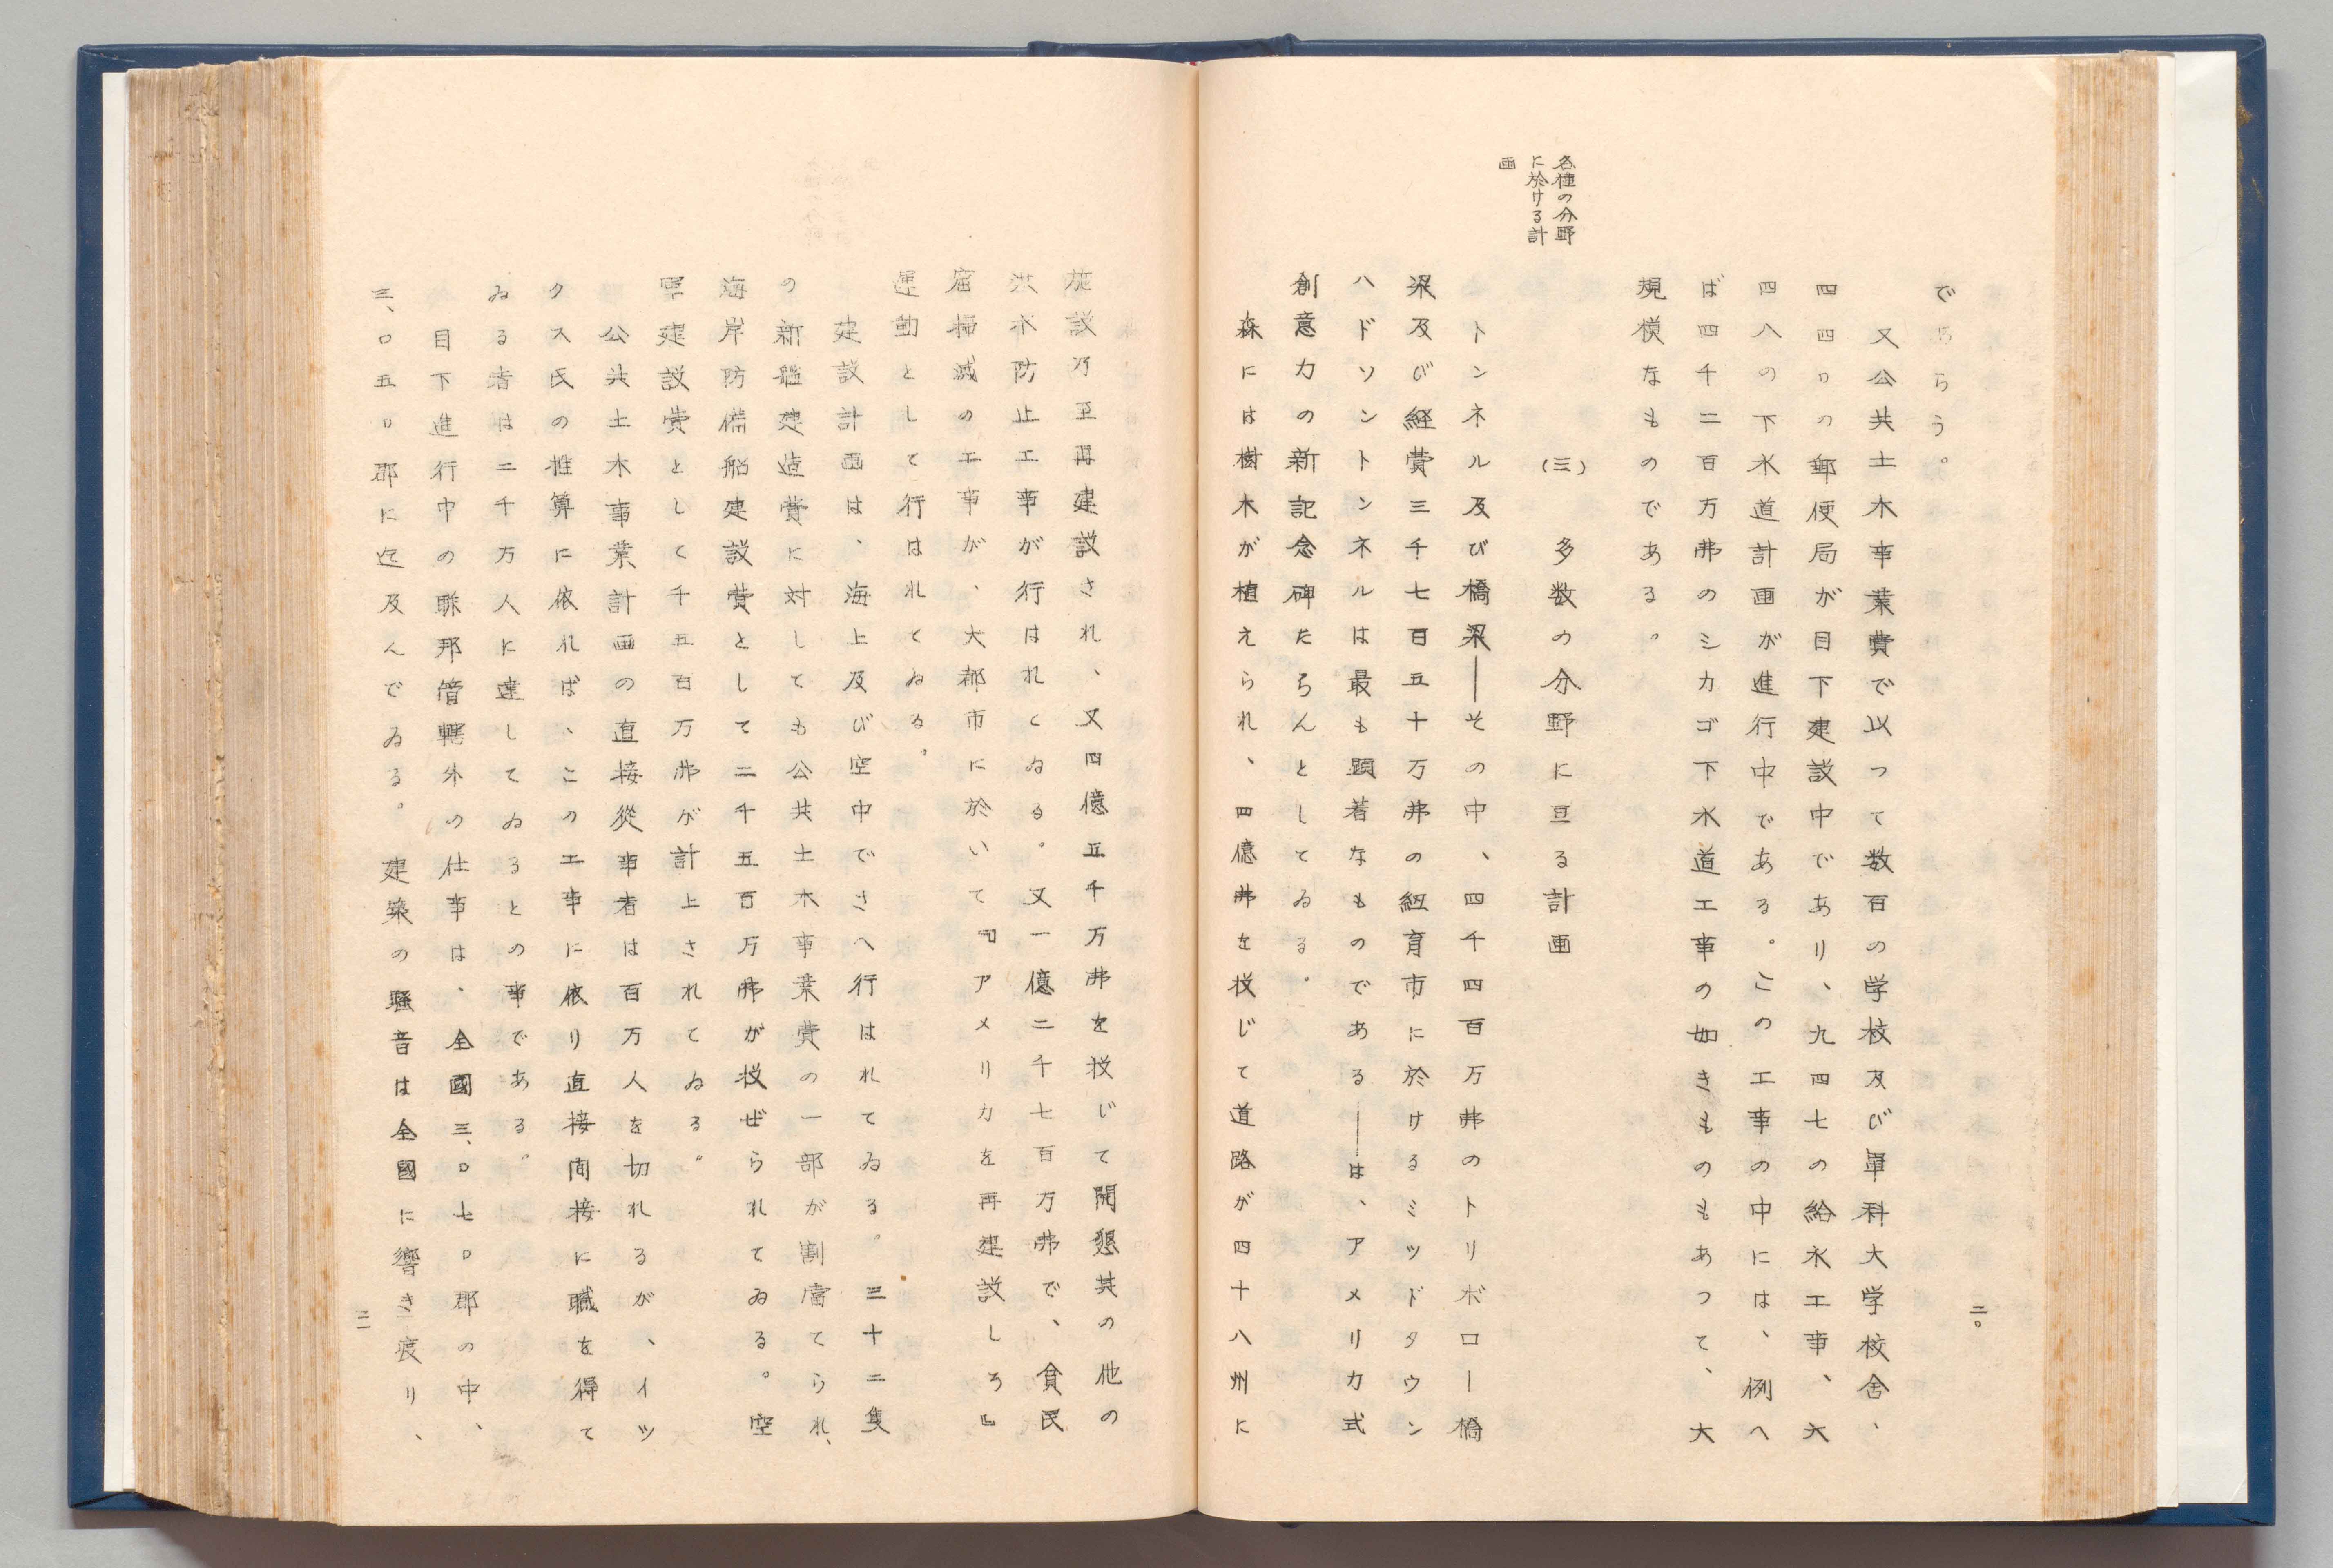 二〇
であらう。
又公共土木事業費で以つて数百の学校及び単科大学校舎、
四四〇の郵便局が目下建設中であり、九四七の給水工事、六
四八の下水道計画が進行中である。この工事の中には、例へ
ば四千二百万弗のシカゴ下水道工事の如きものもあつて、大
規模なものである。
各種の分野
に於ける計
画
(三) 多数の分野に亘る計画
トンネル及び橋梁――その中、四千四百万弗のトリボロー橋
梁及び経費三千七百五十万弗の紐育市に於けるミッドタウン
ハドソントンネルは最も顕著なものである――は、アメリカ式
創意力の新記念碑たらんとしてゐる。
森には樹木が植えられ、四億弗を投じて道路が四十八州に
施設乃至再建設され、又四億五千万弗を投じて開墾其の他の
洪水防止工事が行はれてゐる。又一億二千七百万弗で、貧民
窟掃滅の工事が、大都市に於いて『アメリカを再建設しろ』
運動として行はれてゐる。
建設計画は、海上及び空中でさへ行はれてゐる。三十二隻
の新艦建造費に対しても公共土木事業費の一部が割当てられ、
海岸防備船建設費として二千五百万弗が投ぜられてゐる。空
軍建設費として千五百万弗が計上されてゐる。
公共土木事業計画の直接従事者は百万人を切れるが、イッ
クス氏の推算に依れば、この工事に依り直接間接に職を得て
ゐる者は二千万人に達してゐるとの事である。
目下進行中の聯邦管轄外の仕事は、全國三、〇七〇郡の中、
三、〇五〇郡に迄及んでゐる。建築の騒音は全國に響き渡り、
二一